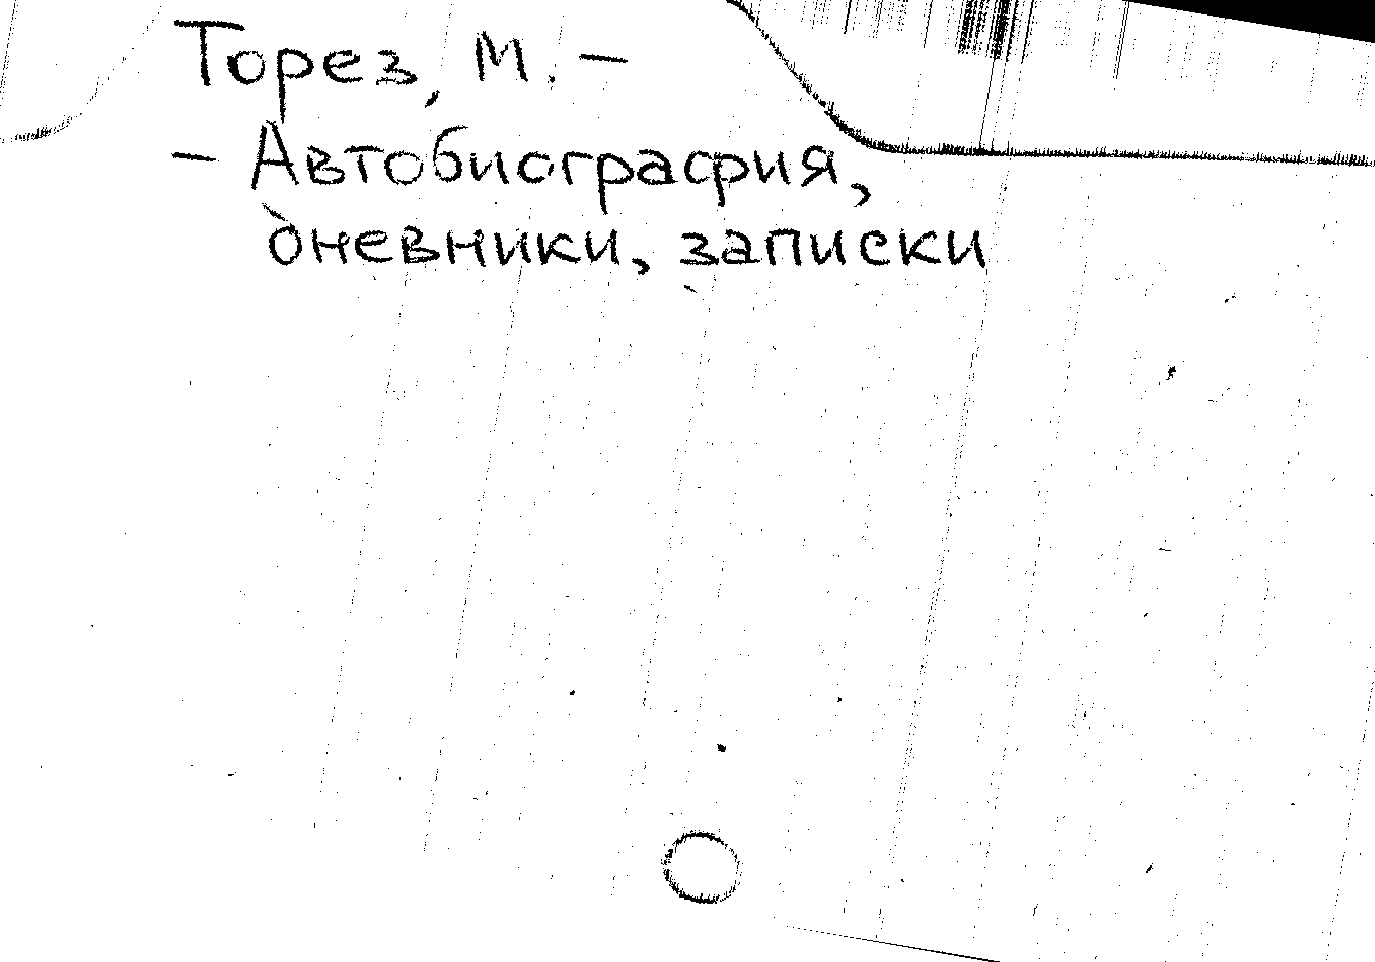 Торез, М. –
– Автобиография,
дневники, записки